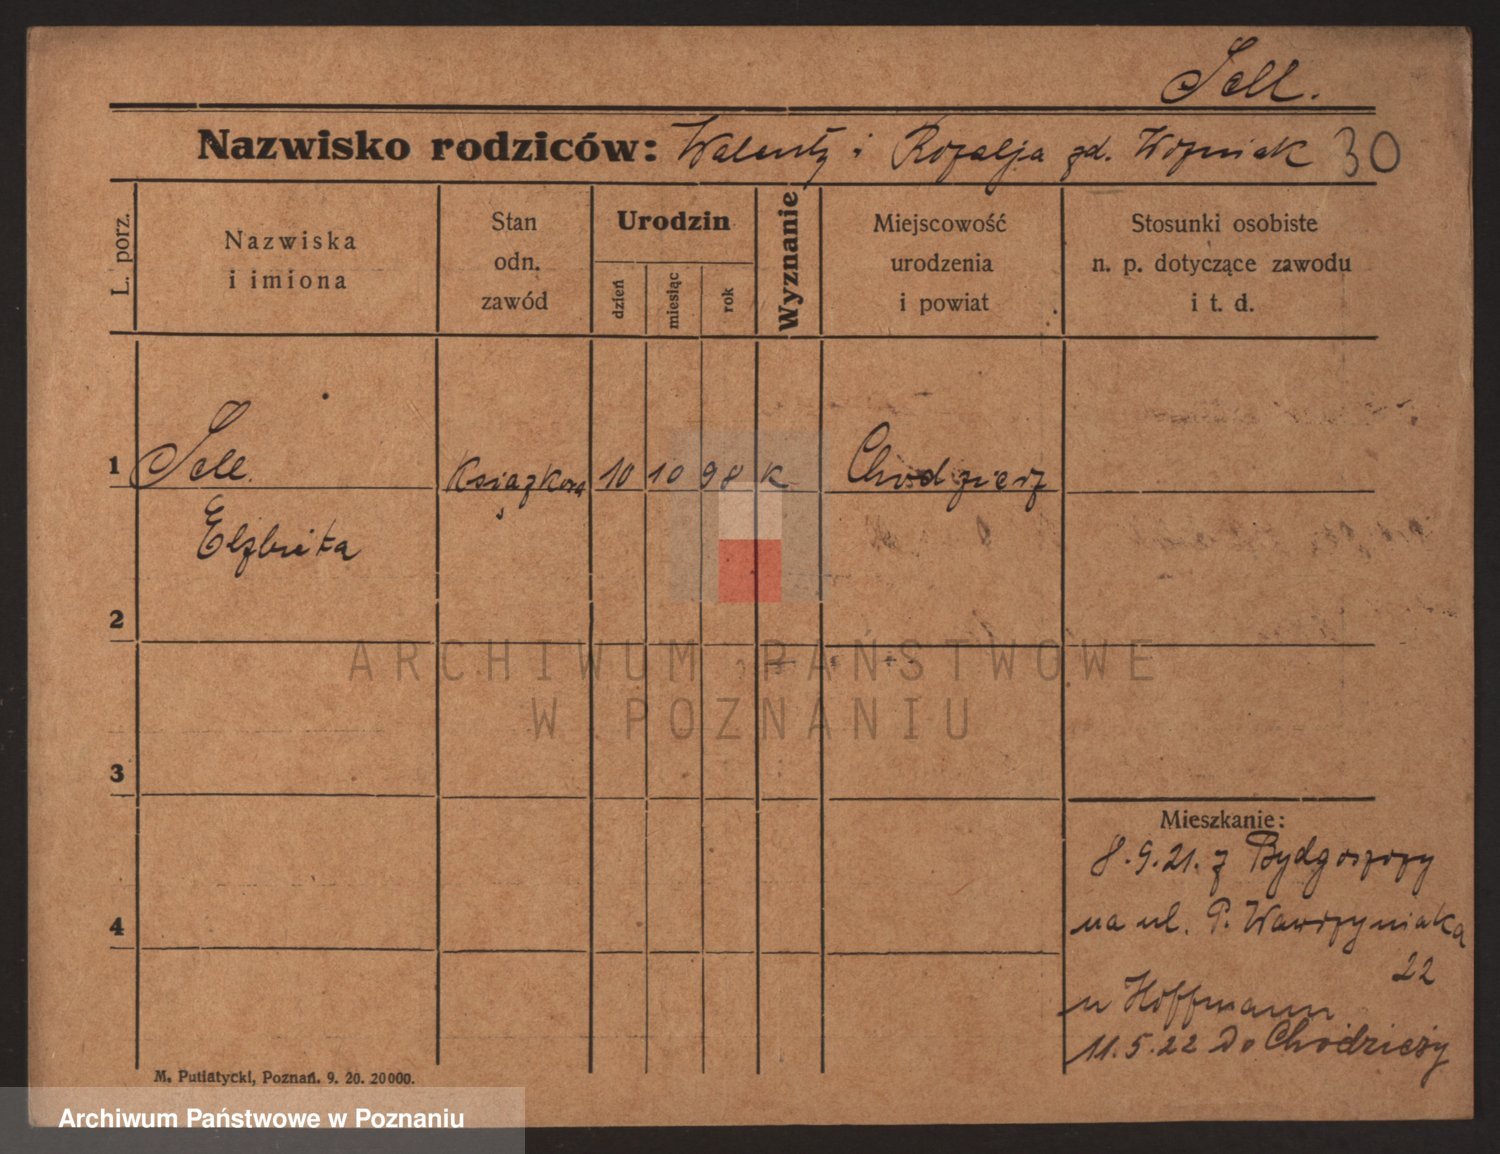 Sell.
Nazwisko rodziców: Walenty i Rozalja zd. Wozniak 30
L. porz.
Nazwiska
i imiona
Stan
odn.
zawód
Urodzin
dzień
miesiąc
rok
Wyznanie
Miejscowość
urodzenia
i powiat
Stosunki osobiste
n. p. dotyczące zawodu
i t. d.
1 Sell 10 10 98 K Chodzież
Elzbieta
2
3
4
Mieszkanie:
8.9.21. z Bydgoszczy
na ul. P. Wawrzyniaka
22
u Hoffmann
11.5.22 do Chodzieży
M. Putiatycki, Poznań. 9. 20. 20000.
ARCHIWUM PAŃSTWOWE
W POZNANIU
Archiwum Państwowe w Poznaniu